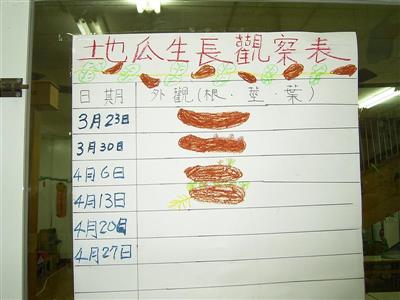 地瓜生長觀察表
日期 外觀(根．莖．葉)
3月23日
3月30日
4月6日
4月13日
4月20日
4月27日